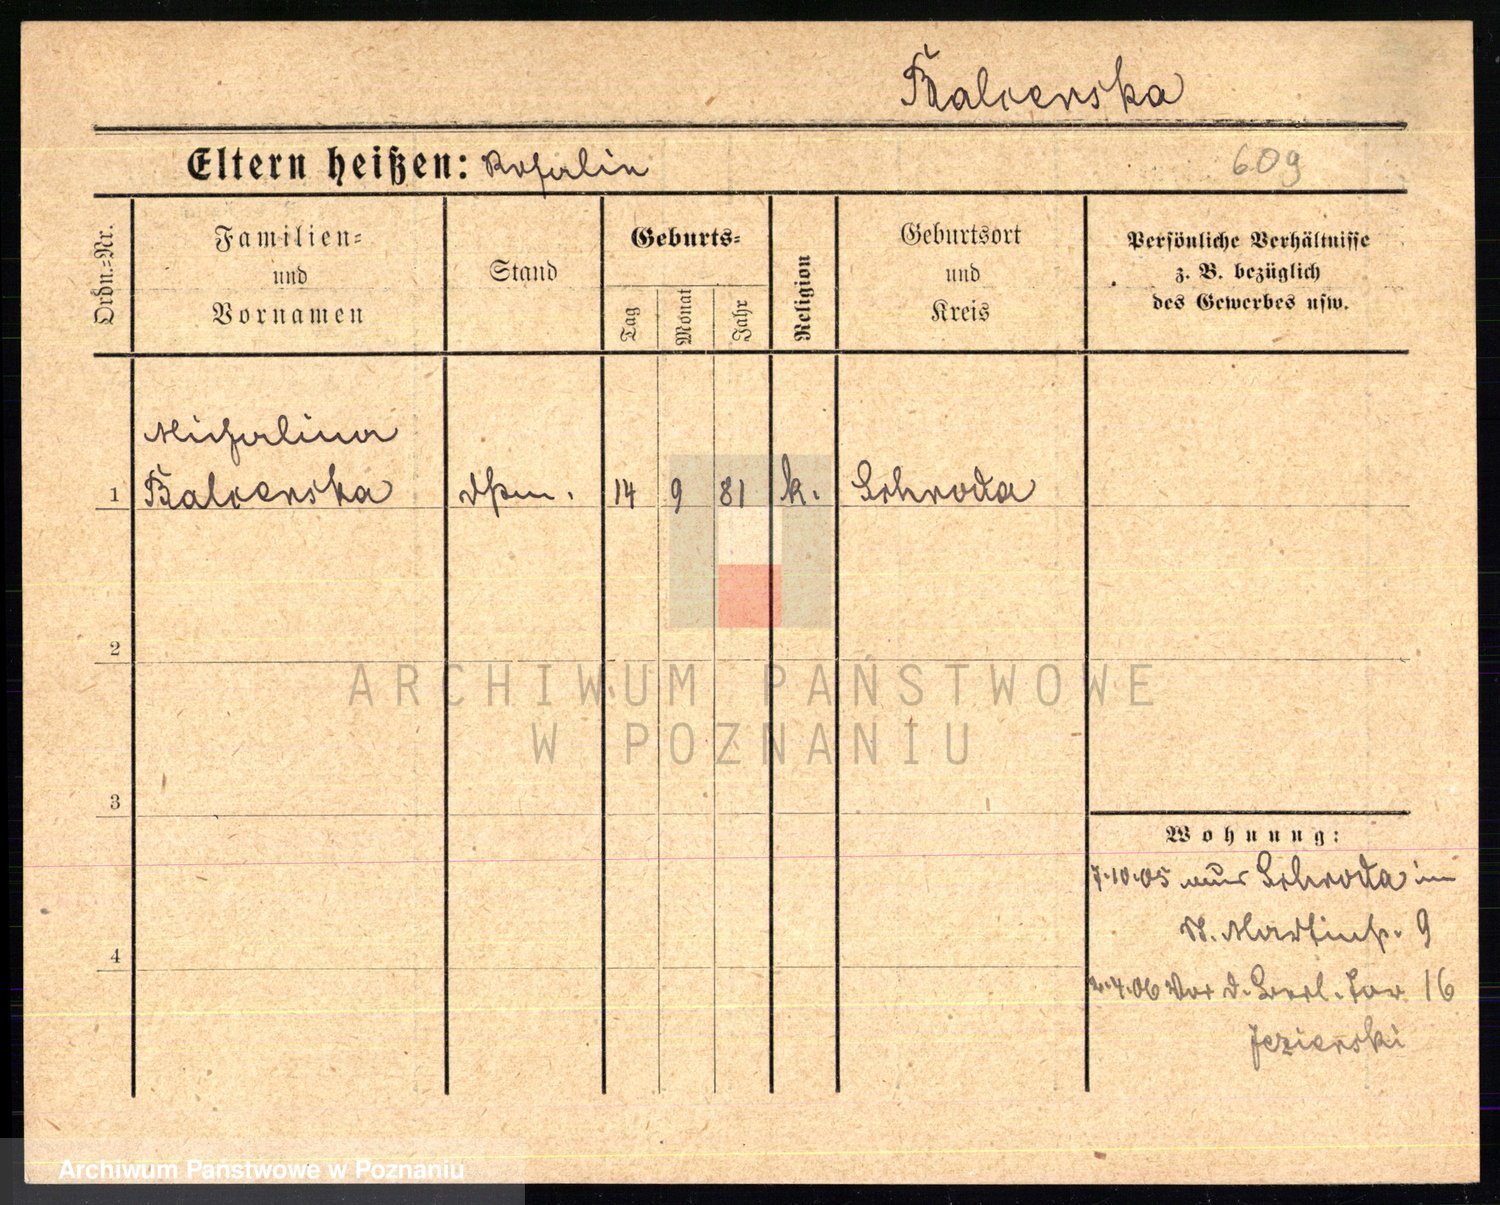 Balcerska
Eltern heißen: Rosalie
609
Ordn.-Nr.
Familien-
und
Vornamen
Stand
Geburts-
Tag
Monat
Jahr
Religion
Geburtsort
und
Kreis
Persönliche Verhältnisse
z. B. bezüglich
des Gewerbes usw.
Michalina
1 Balcerska 14 9 81 k. Schroda
2
3
4
Wohnung:
7.10.05 aus Schroda in
St. Martinstr. 9
4.06 Vor d. Berl. Tor 16
Jezierski
ARCHIWUM PAŃSTWOWE
W POZNANIU
Archiwum Państwowe w Poznaniu